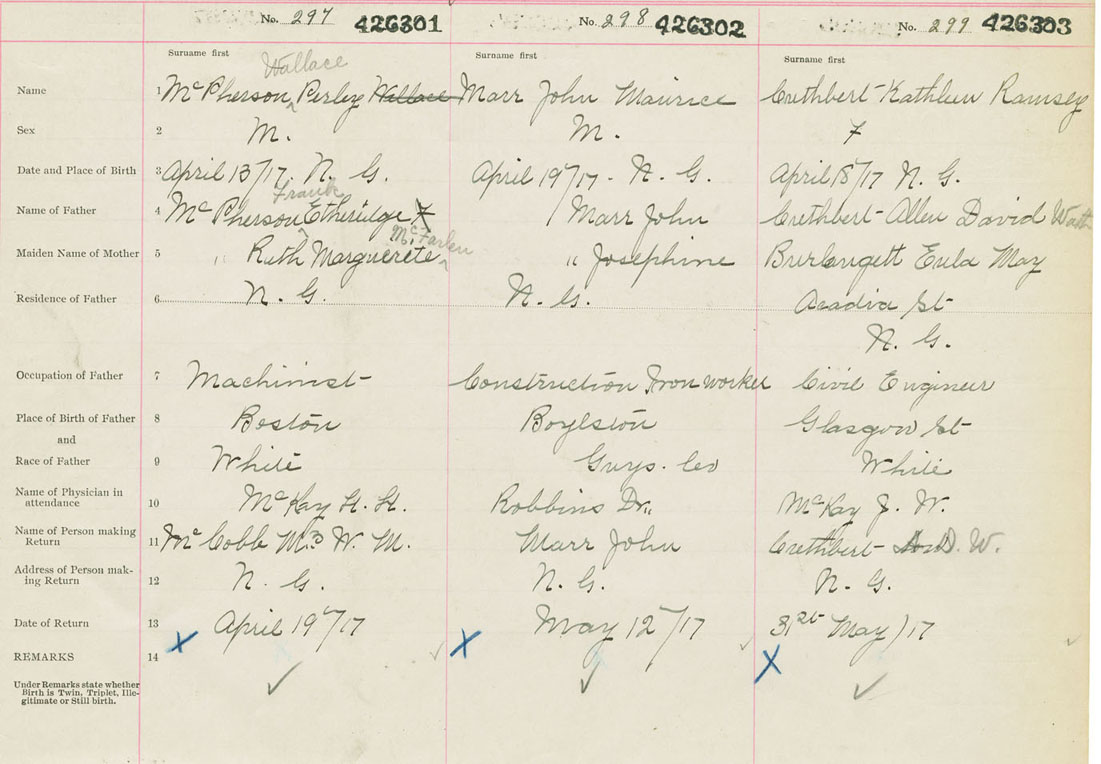 No. 297 426301 No. 298 426302 No. 299 426303
Surname first Surname first Surname first
Wallace
Name 1 McPherson, Perley Wallace Marr John Maurice Cuthbert Kathleen Ramsey
Sex 2 M. M. F
Date and Place of Birth 3 April 13/17. N. G. April 19/17 - N. G. April 18/17 N. G.
Frank
Name of Father 4 McPherson Etheridge F Marr John Cuthbert - Allen David Watt
McFarlen
Maiden Name of Mother 5 " Ruth Marguerete " Josephine Eula May
Residence of Father 6 N. G. N. G. Acadia St
N. G.
Occupation of Father 7 Machinist Construction Iron worker Civil Engineer
Place of Birth of Father 8 Boston Boylston Glasgow St
and
Race of Father 9 White Guys. Co White
Name of Physician in
attendance 10 McKay H. H. Robbins Dr. McKay J. W.
Name of Person making
Return 11 Mc Cobb M.D W. M. Marr John Cuthbert D. W.
Address of Person mak-
ing Return 12 N. G. N. G. N. G.
Date of Return 13 April 19/17 May 12/17 31st May/17
REMARKS 14 X X X
Under Remarks state whether
Birth is Twin, Triplet, Ille-
gitimate or Still birth.